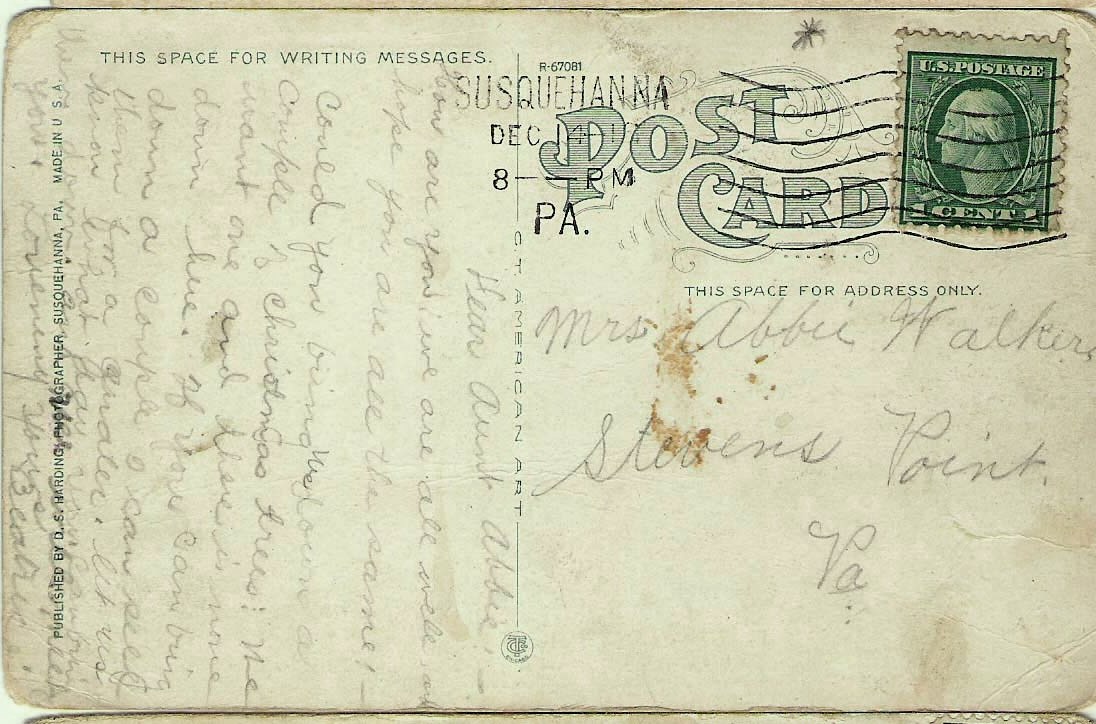 THIS SPACE FOR WRITING MESSAGES.
R-67081
SUSQUEHANNA
DEC 14
8 — PM
PA.
POST
CARD
U.S. POSTAGE
1 CENT 1
THIS SPACE FOR ADDRESS ONLY.
Mrs Abbie Walker
Stevens Point.
Pa.
C T AMERICAN ART
CHICAGO
PUBLISHED BY D. S. HARDING, PHOTOGRAPHER, SUSQUEHANNA, PA. MADE IN U S A
Dear Aunt Abbie; -
how are you we are all well
hope you are all the same! -
Could you bring us down a
couple of christmas trees? We
want one and there is none
down here. If you can bring
down a couple I can sell
them for a Quarter. let us
know what day you
Beatrice